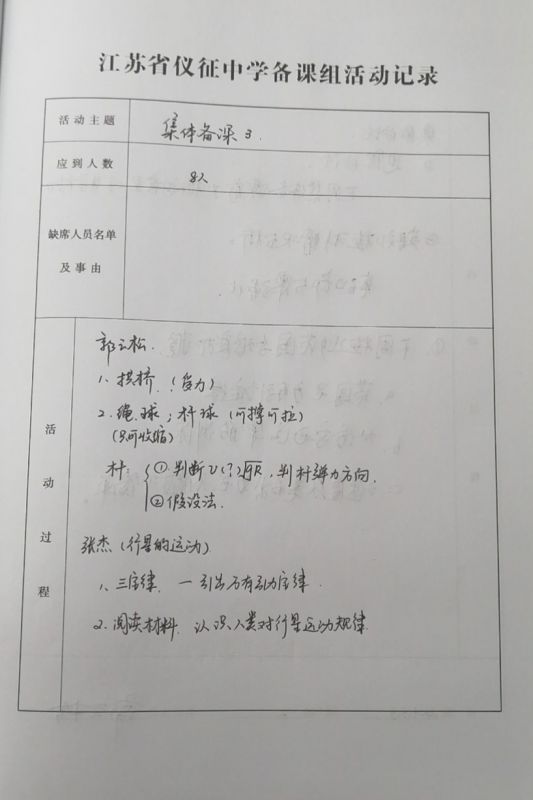 江苏省仪征中学备课组活动记录
活动主题
集体备课3.
应到人数
8人
缺席人员名单
及事由
活动过程
郭云松.
1、拱桥.(受力)
2.绳.球;杆球(可撑可拉)
(只可收缩)
杆:
①判断v(?)√gR,判杆弹力方向.
②假设法.
张杰(行星的运动)
1、三定律. 一引出万有引力定律.
2.阅读材料. 认识人类对行星运动规律.